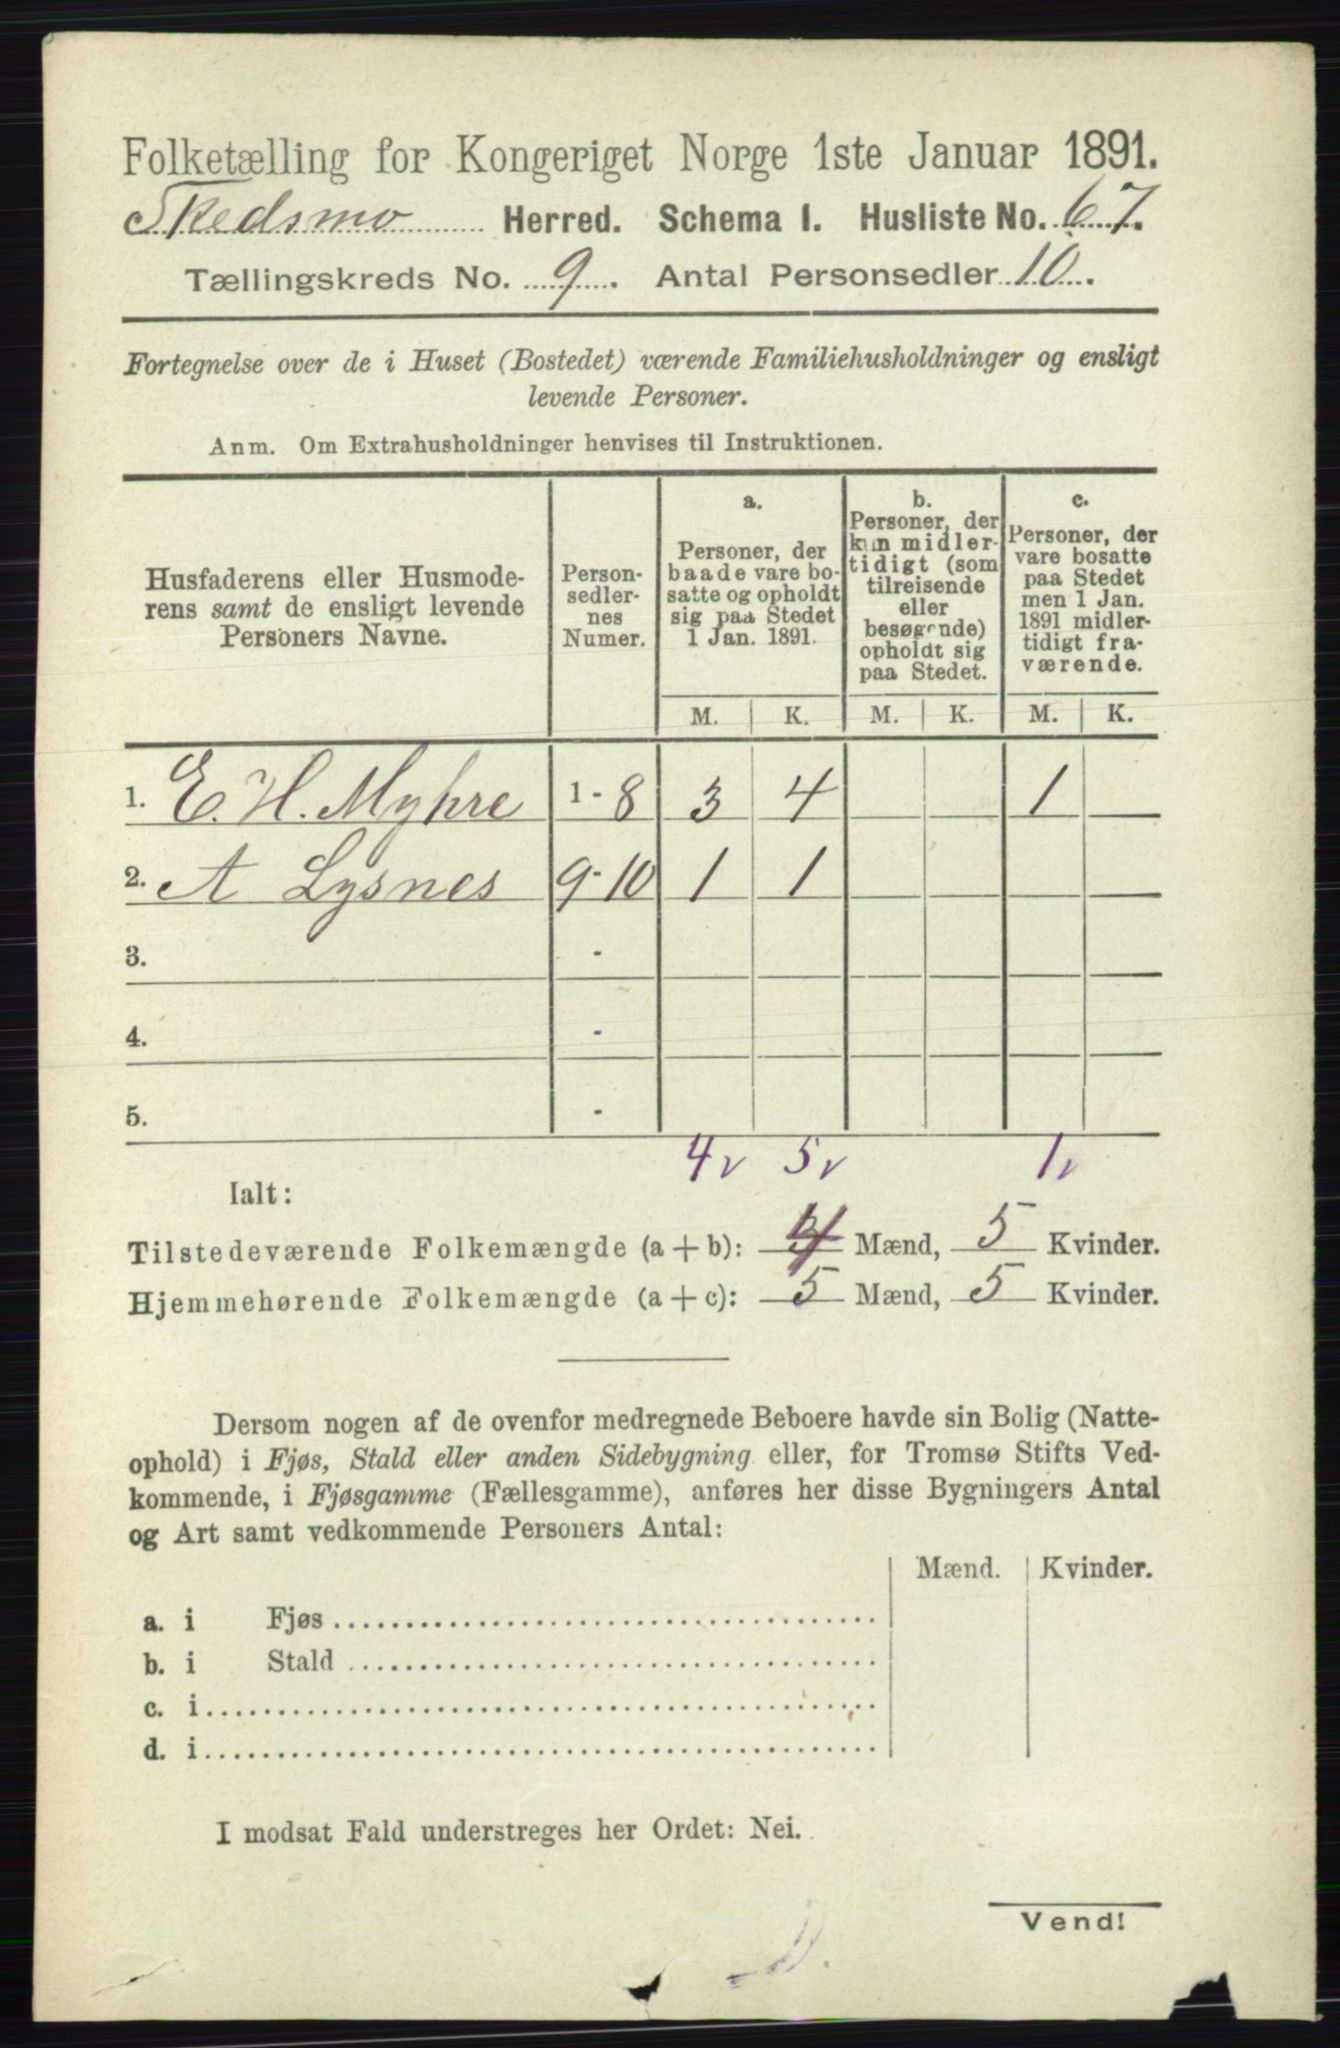 Folketælling for Kongeriget Norge 1ste Januar 1891.
Skedsmo Herred. Schema I. Husliste No. 67.
Tællingskreds No. 9. Antal Personsedler 10.
Fortegnelse over de i Huset (Bostedet) værende Familiehusholdninger og ensligt
levende Personer.
Anm. Om Extrahusholdninger henvises til Instruktionen.
Husfaderens eller Husmode-
rens samt de ensligt levende
Personers Navne.
Person-
sedler-
nes
Numer.
a.
Personer, der
baade vare bo-
satte og opholdt
sig paa Stedet
1 Jan. 1891.
b.
Personer, der
kun midler-
tidigt (som
tilreisende
eller
besøgende)
opholdt sig
paa Stedet.
c.
Personer, der
vare bosatte
paa Stedet
men 1 Jan.
1891 midler-
tidigt fra-
værende.
M. K. M. K. M. K.
1. E. H. Myhre 1-8 3 4 1
2. A Lysnes 9-10 1 1
3. -
4. -
5. -
4 v 5 v 1 v
Ialt:
Tilstedeværende Folkemængde (a + b): 4 Mænd, 5 Kvinder.
Hjemmehørende Folkemængde (a + c): 5 Mænd, 5 Kvinder.
Dersom nogen af de ovenfor medregnede Beboere havde sin Bolig (Natte-
ophold) i Fjøs, Stald eller anden Sidebygning eller, for Tromsø Stifts Ved-
kommende, i Fjøsgamme (Fællesgamme), anføres her disse Bygningers Antal
og Art samt vedkommende Personers Antal:
Mænd. Kvinder.
a. i Fjøs
b. i Stald
c. i
d. i
I modsat Fald understreges her Ordet: Nei.
Vend!